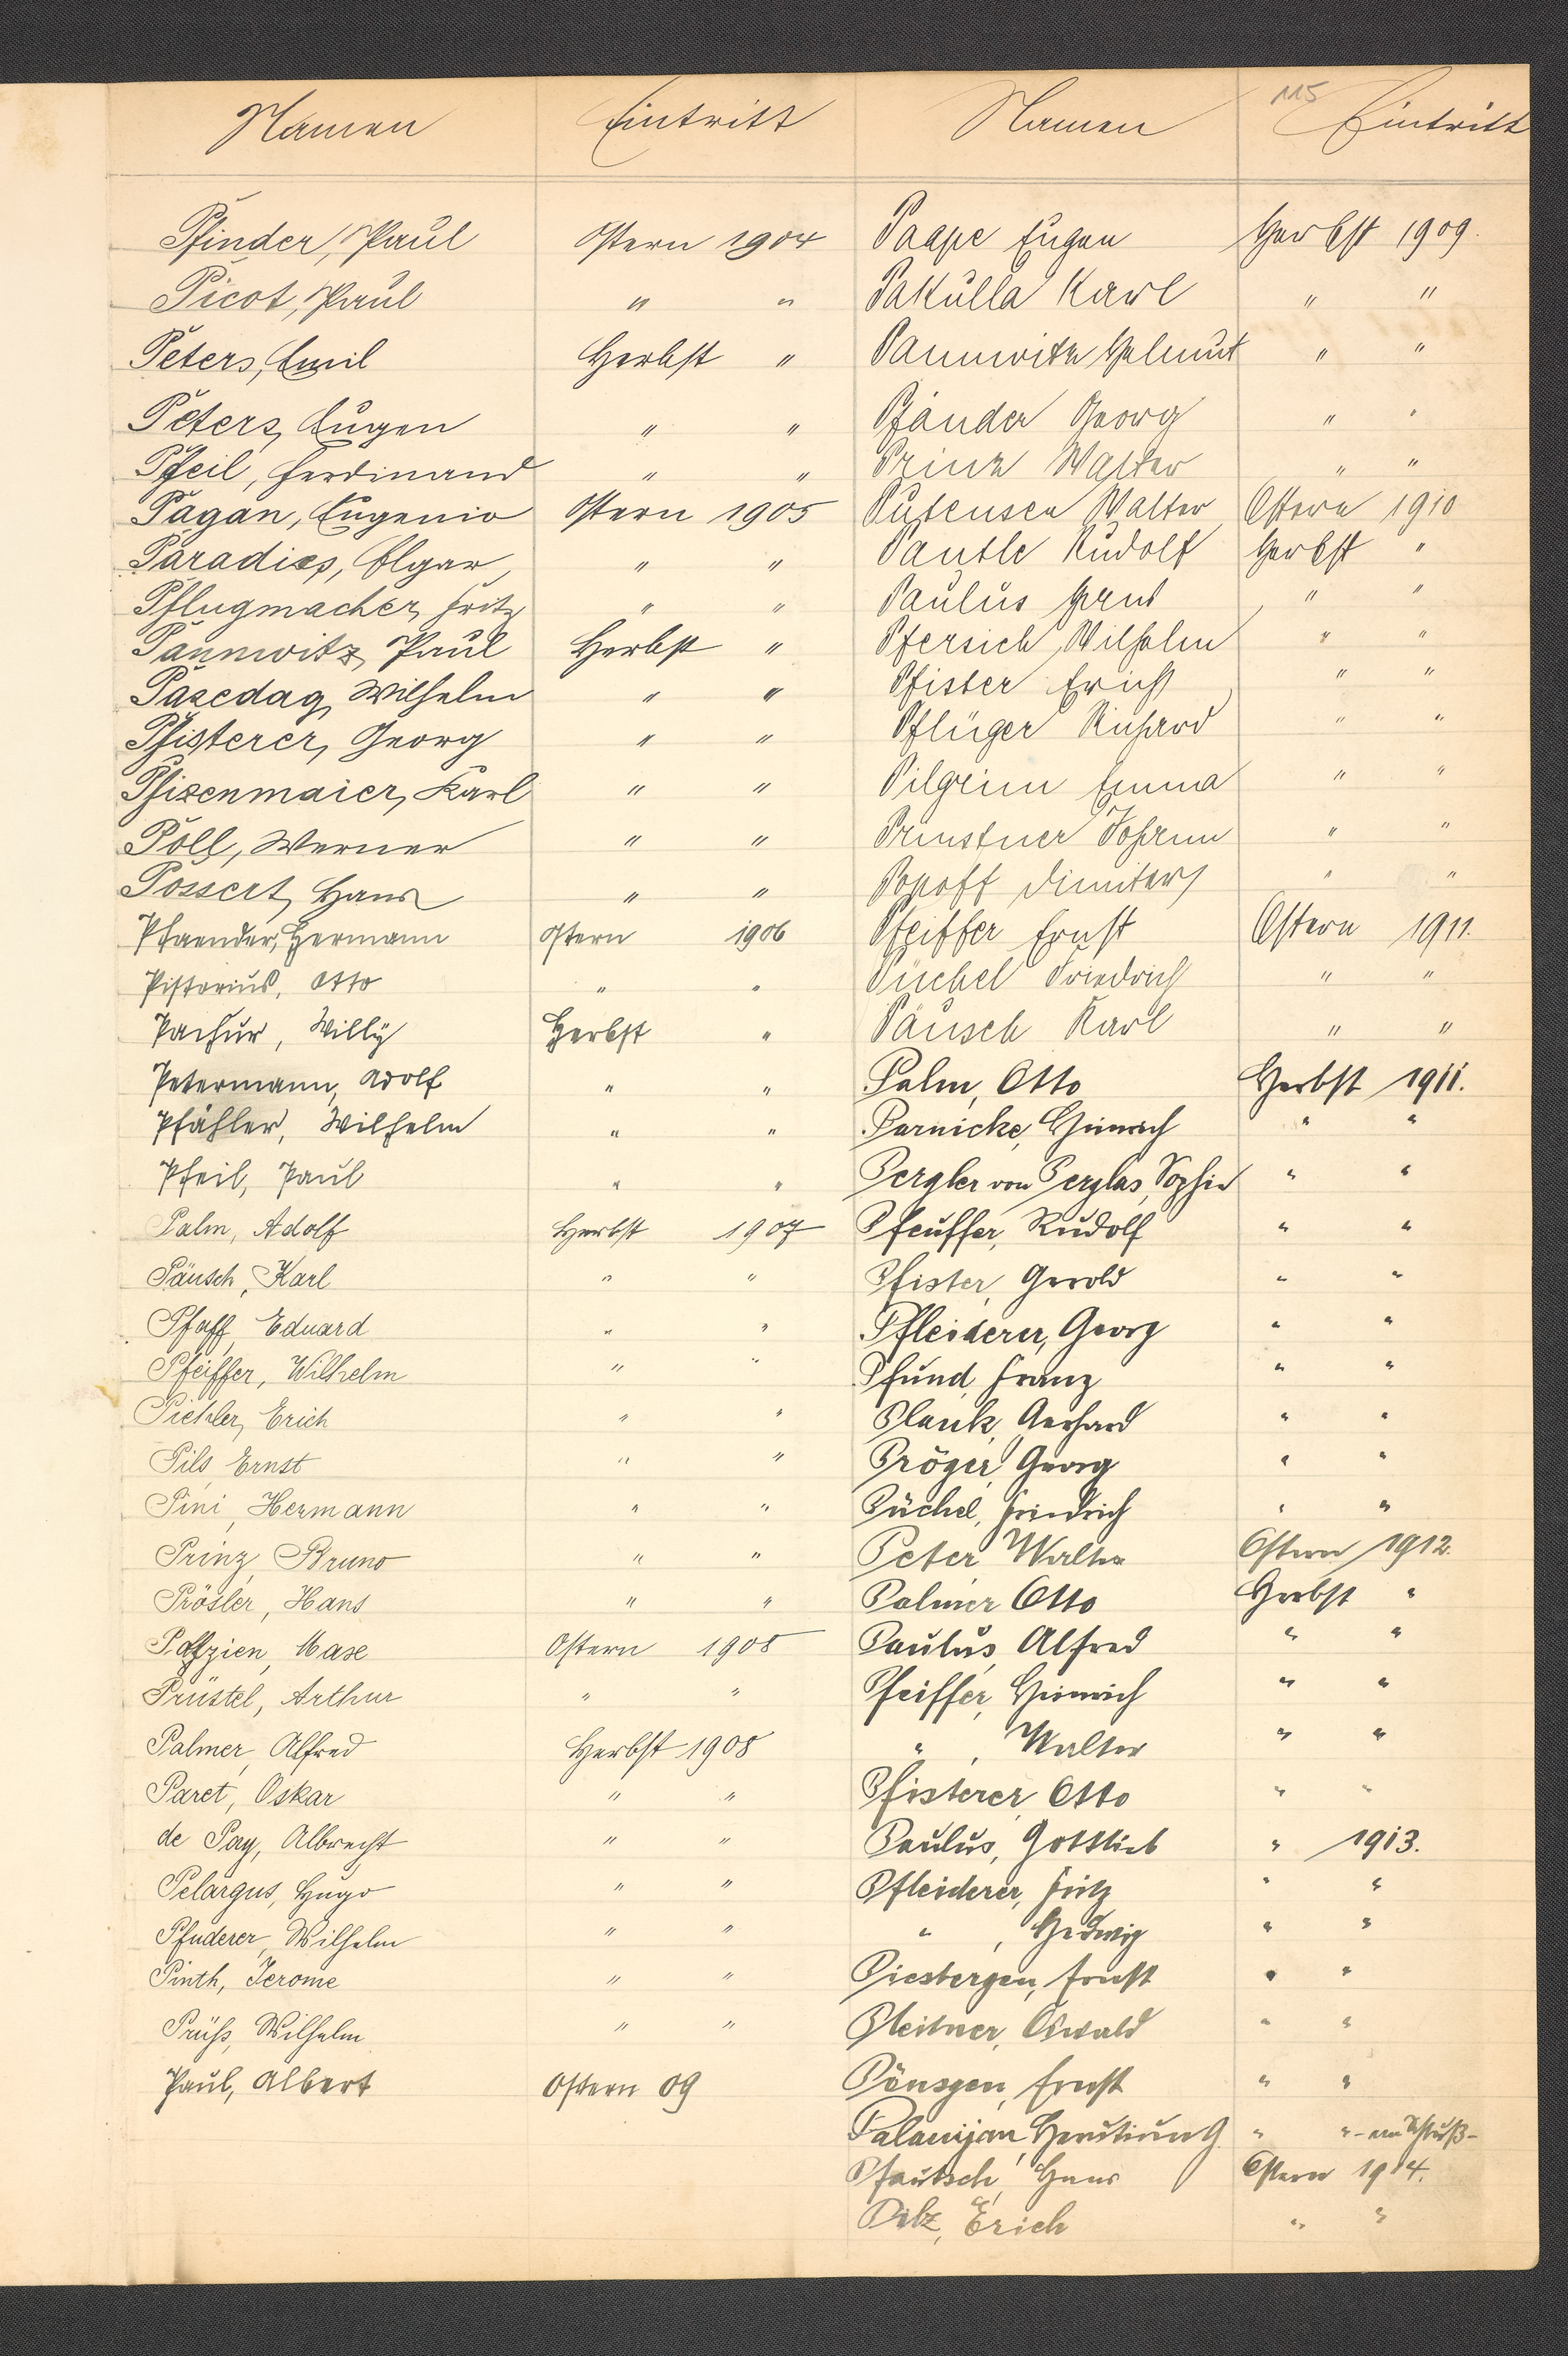 115
Namen Eintritt Namen Eintritt
Pfinder, Paul Ostern 1904 Paape Eugen Herbst 1909.
Picot, Paul " " Pakulla Karl " "
Peters, Emil Herbst " Pannwitz Helmut " "
Peters, Eugen " " Pfänder Georg " "
Pfeil, Ferdinand " " Prinz Walter " "
Pagan, Eugenio Ostern 1905 Putensen Walter Ostern 1910
Paradies, Olgar " " Pantle Rudolf Herbst "
Pflugmacher, Fritz " " Paulus " "
Pannwitz, Paul Herbst " Pfersich Wilhelm " "
Pasedag, Wilhelm " " Pfister Erich " "
Pfisterer, Georg " " Pflüger Richard " "
Pfizenmaier, Karl " " Pilgrim Emma " "
Poll, Werner " " Johann " "
Possert, Hans " " Popoff Dimitar " "
Pfaender, Hermann Ostern 1906 Pfeiffer Ernst Ostern 1911.
Pistorius, Otto " " Püchel Friedrich " "
Pachur, Willy Herbst " Päusch Karl " "
Petermann, Adolf " " Palm, Otto Herbst 1911.
Pfähler, Wilhelm " " Parnicke, Heinrich " "
Pfeil, Paul " " Pergler von Perglas, Sophie " "
Palm, Adolf Herbst 1907 Pfeuffer, Rudolf " "
Päusch, Karl " " Pfister, Gerold " "
Pfaff, Eduard " " Pfleiderer, Georg " "
Pfeiffer, Wilhelm " " Pfund, Franz " "
Piehler, Erich " " Plank, Gerhard " "
Pils, Ernst " " Pröger, Georg " "
Pini, Hermann " " Püchel, Friedrich " "
Prinz, Bruno " " Peter Walter Ostern 1912.
Prösler, Hans " " Palmer Otto Herbst "
Ostern 1908 Paulus, Alfred " "
Prüstel, Arthur " " Pfeiffer, Heinrich " "
Palmer, Alfred Herbst 1908 " , Walter " "
Paret, Oskar " " Pfisterer Otto " "
de Pay, Albrecht " " Paulus, Gottlieb " 1913.
Pelargus, Hugo " " Pfleiderer, Fritz " "
Pfuderer, Wilhelm " " " , Hedwig " "
Pinth, Jerome " " Piesbergen, Ernst " "
Prüß, Wilhelm " " Pleitner, Oswald " "
Paul, Albert Ostern 09 Pönsgen, Ernst " "
Palanijan " "
Pfautsch, Hans Ostern 1914.
Pilz, Erich " "